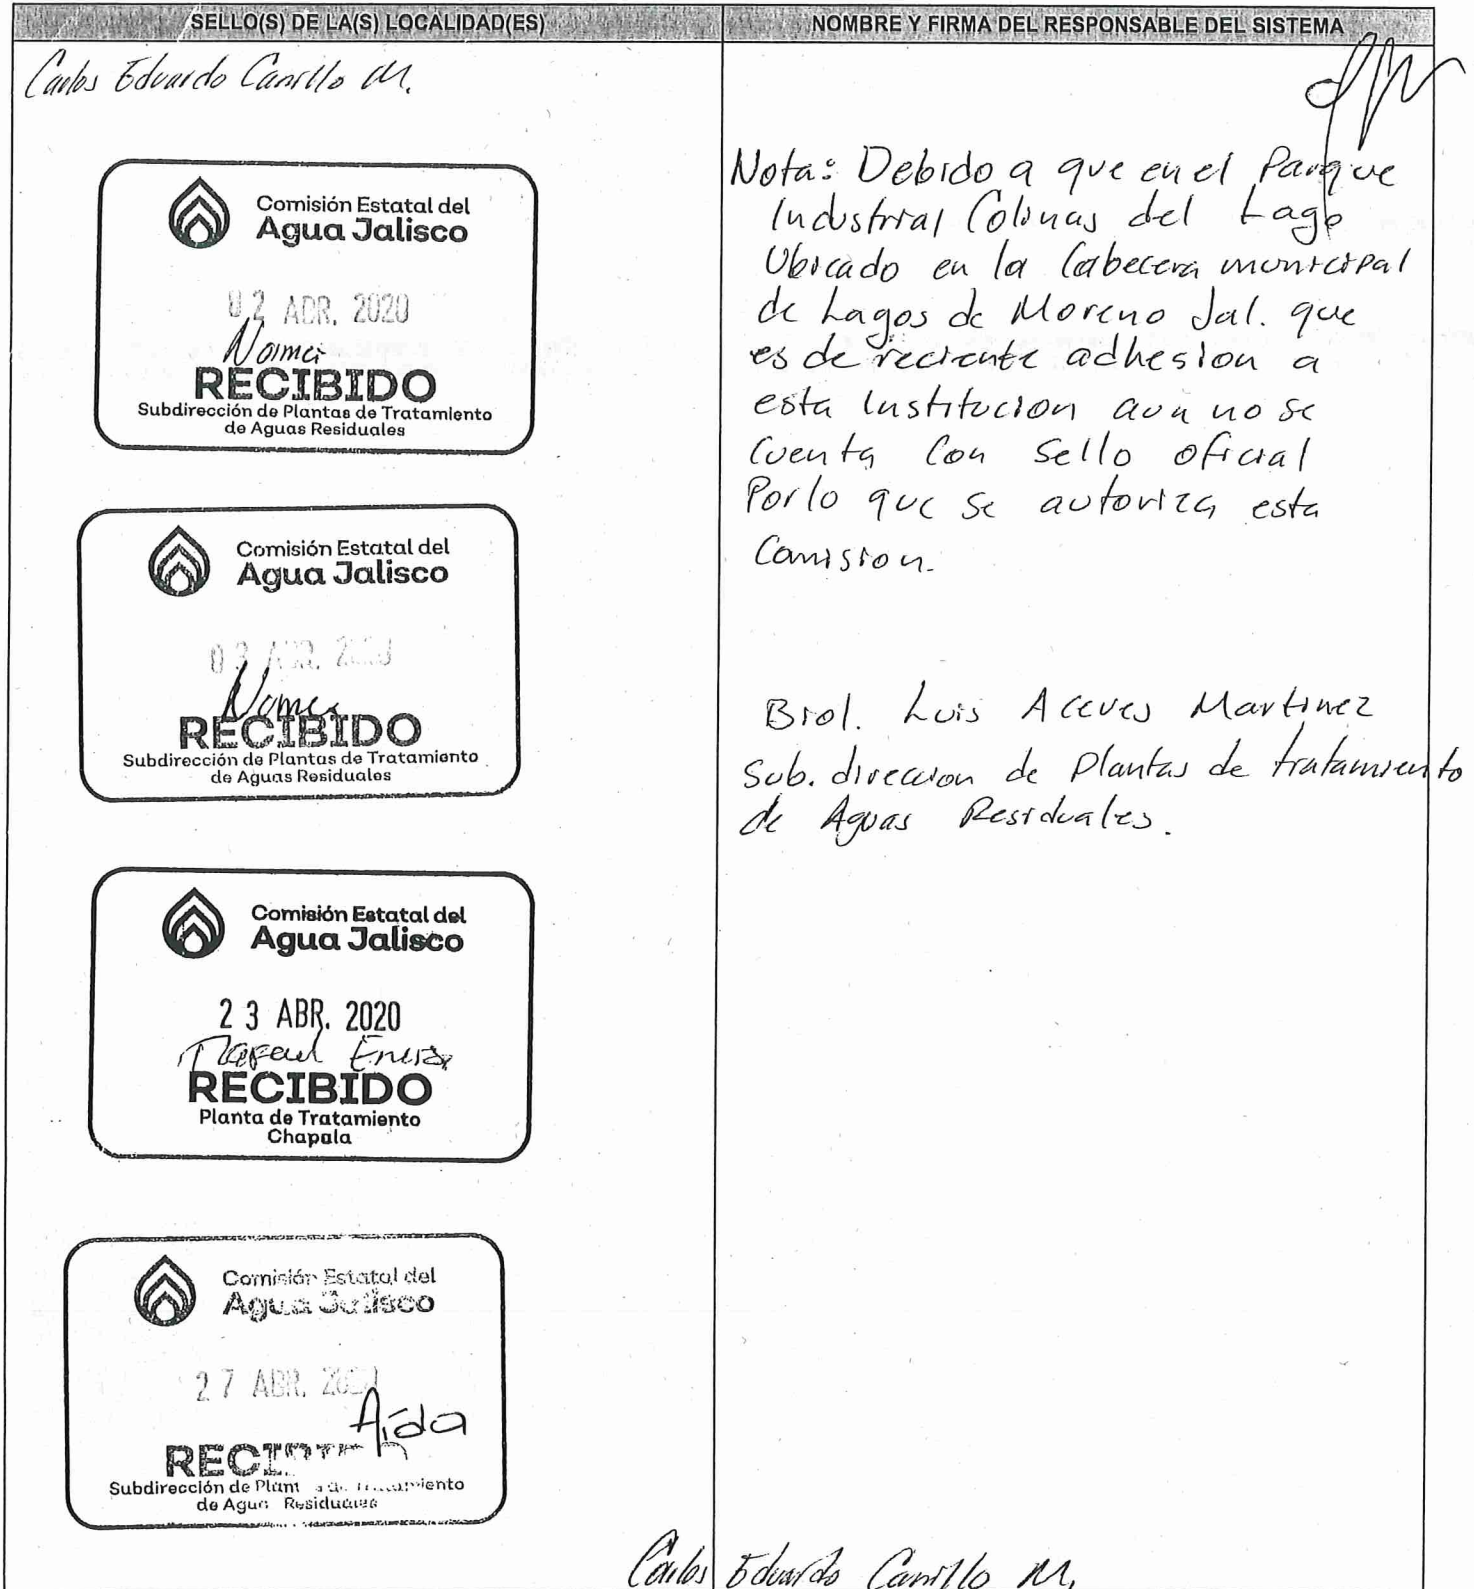 SELLO(S) DE LA(S) LOCALIDAD(ES)
Carlos Eduardo Carrillo M.
Comisión Estatal del
Agua Jalisco
02 ABR. 2020
RECIBIDO
Subdirección de Plantas de Tratamiento
de Aguas Residuales
Comisión Estatal del
Agua Jalisco
ABR. 2020
RECIBIDO
Subdirección de Plantas de Tratamiento
de Aguas Residuales
Comisión Estatal del
Agua Jalisco
23 ABR. 2020
Rafael
RECIBIDO
Planta de Tratamiento
Chapala
Comisión Estatal del
Agua Jalisco
27 ABR. 2020
Aída
RECIBIDO
Subdirección de Plantas de Tratamiento
de Aguas Residuales
NOMBRE Y FIRMA DEL RESPONSABLE DEL SISTEMA
Nota: Debido a que en el Parque
Industrial Colinas del Lago
Ubicado en la Cabecera municipal
de Lagos de Moreno Jal. que
es de reciente adhesion a
esta Institucion aun no se
Cuenta Con Sello oficial
Por lo que se autoriza esta
Comision.
Biol. Luis Aceves Martinez
Sub. direccion de Plantas de tratamiento
de Aguas Residuales.
Carlos Eduardo Carrillo M.